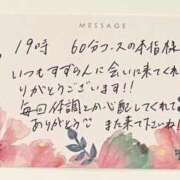 MESSAGE
19時 60分コースの本指様
いつもすずらんに会いに来てくれ
りがとうございます!!
毎回体調とか心配してくれて
ありがとう また来て下さいね!